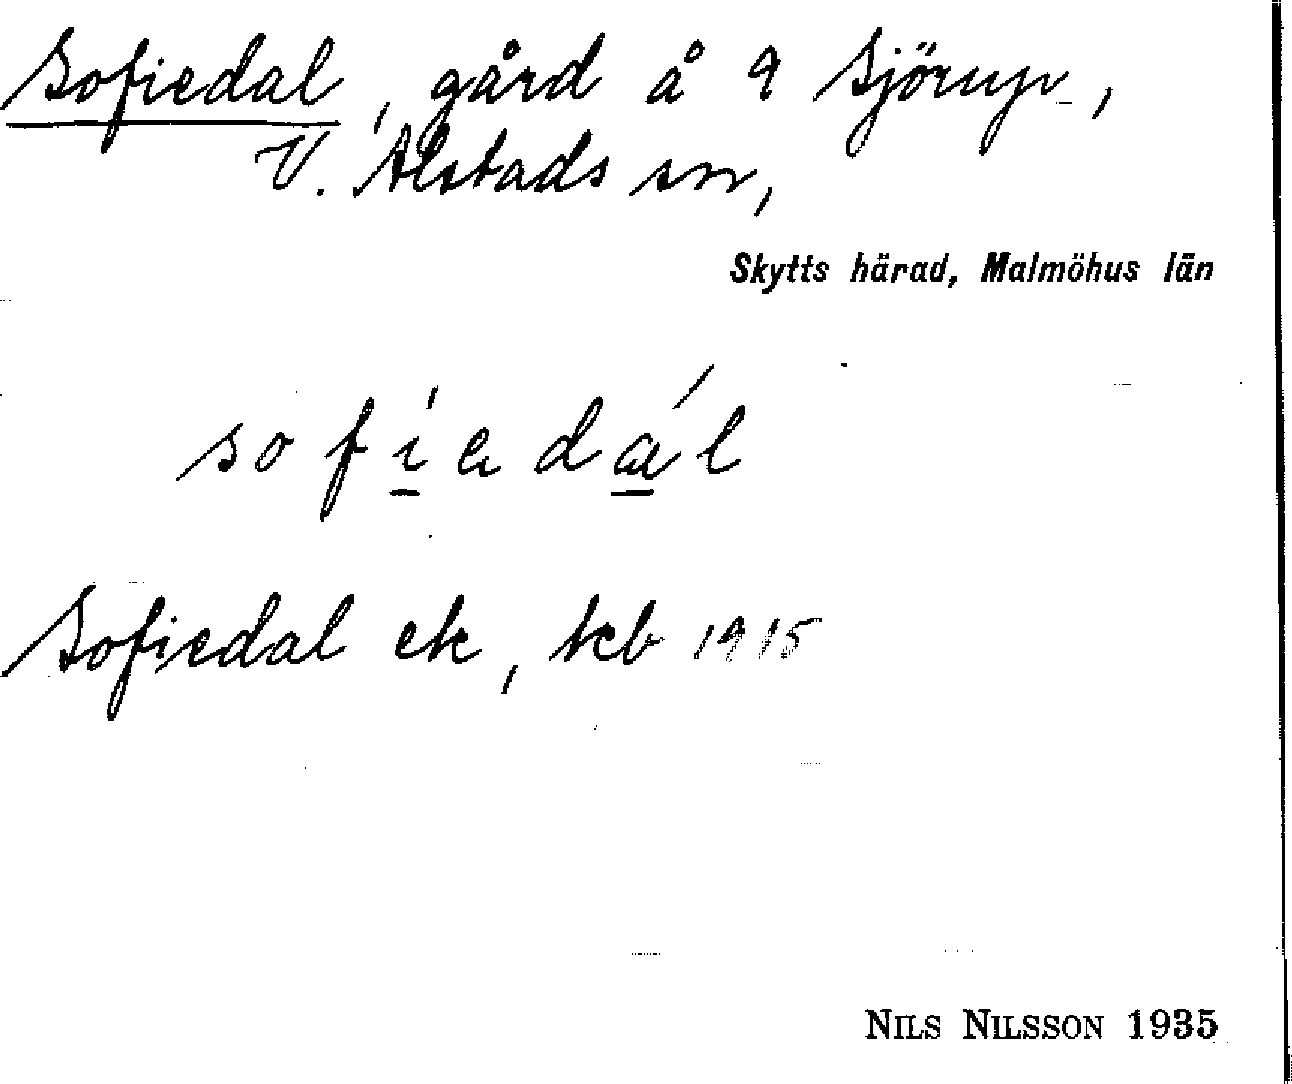 Sofiedal, gård å 9 Sjörup,
V. Alstads sn,
Skytts härad, Malmöhus län
sofíedál
Sofiedal ek, kb 1915
NILS NILSSON 1935